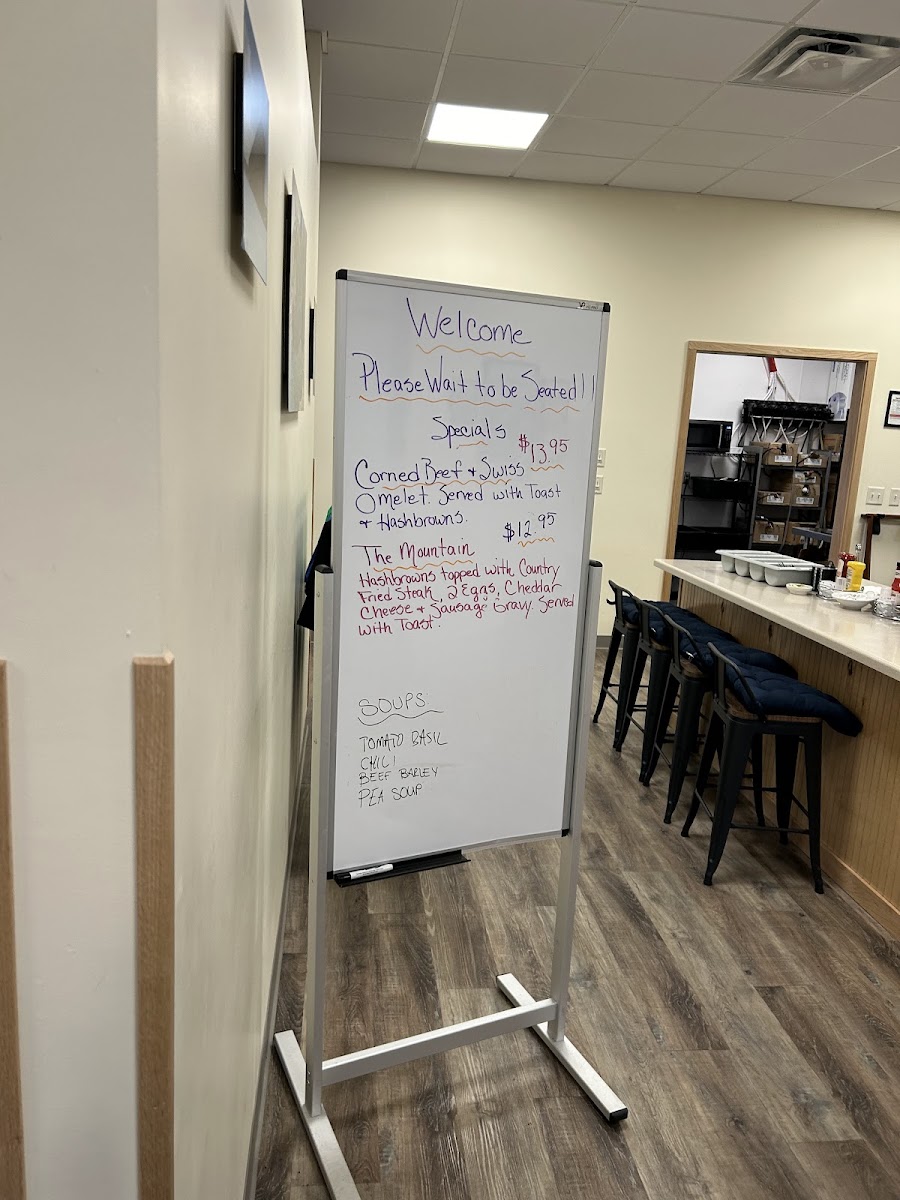 Welcome
Please Wait to be Seated!!
Specials
$13.95
Corned Beef + Swiss
Omelet. Served with Toast
+ Hashbrowns.
$12.95
The Mountain
Hashbrowns topped with Country
Fried Steak, 2 Eggs, Cheddar
Cheese + Sausage Gravy. Served
with Toast.
SOUPS
TOMATO BASIL
CHILI
BEEF BARLEY
PEA SOUP